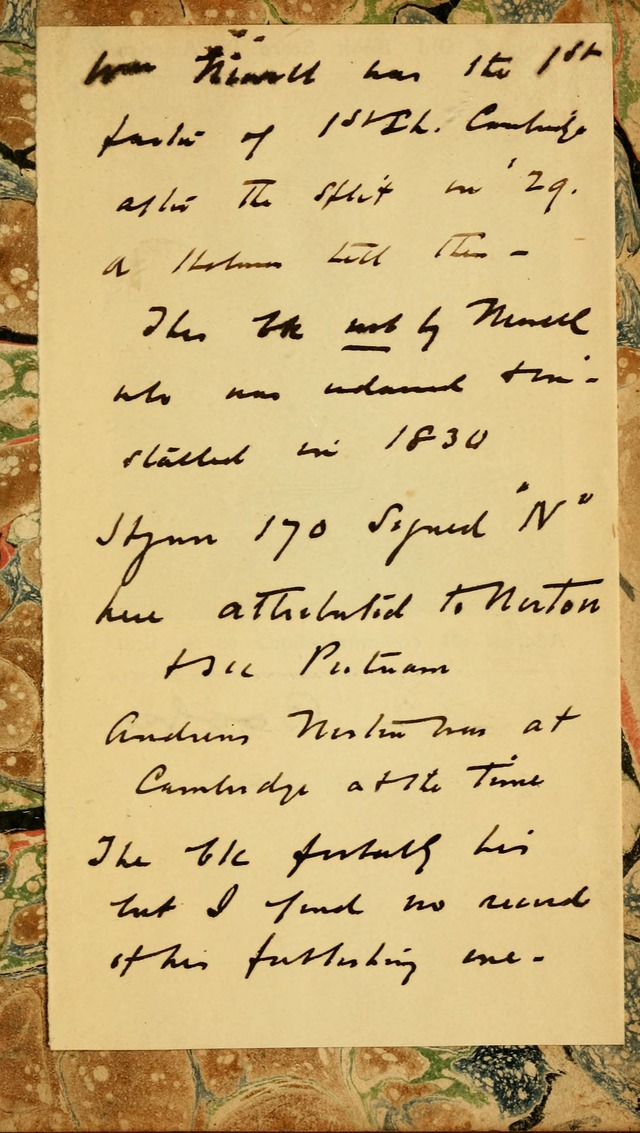 Wm Newell was the 1st
pastor of 1st Ch. Cambridge
after the split in '29.
A Holmes till then -
This bk not by Newell
who was ordained & in-
stalled in 1830
Hymn 170 Signed "N"
here attributed to Norton
& see Putnam
Andrews Norton was at
Cambridge at the time
The bk probably his
but I find no record
of his publishing one -